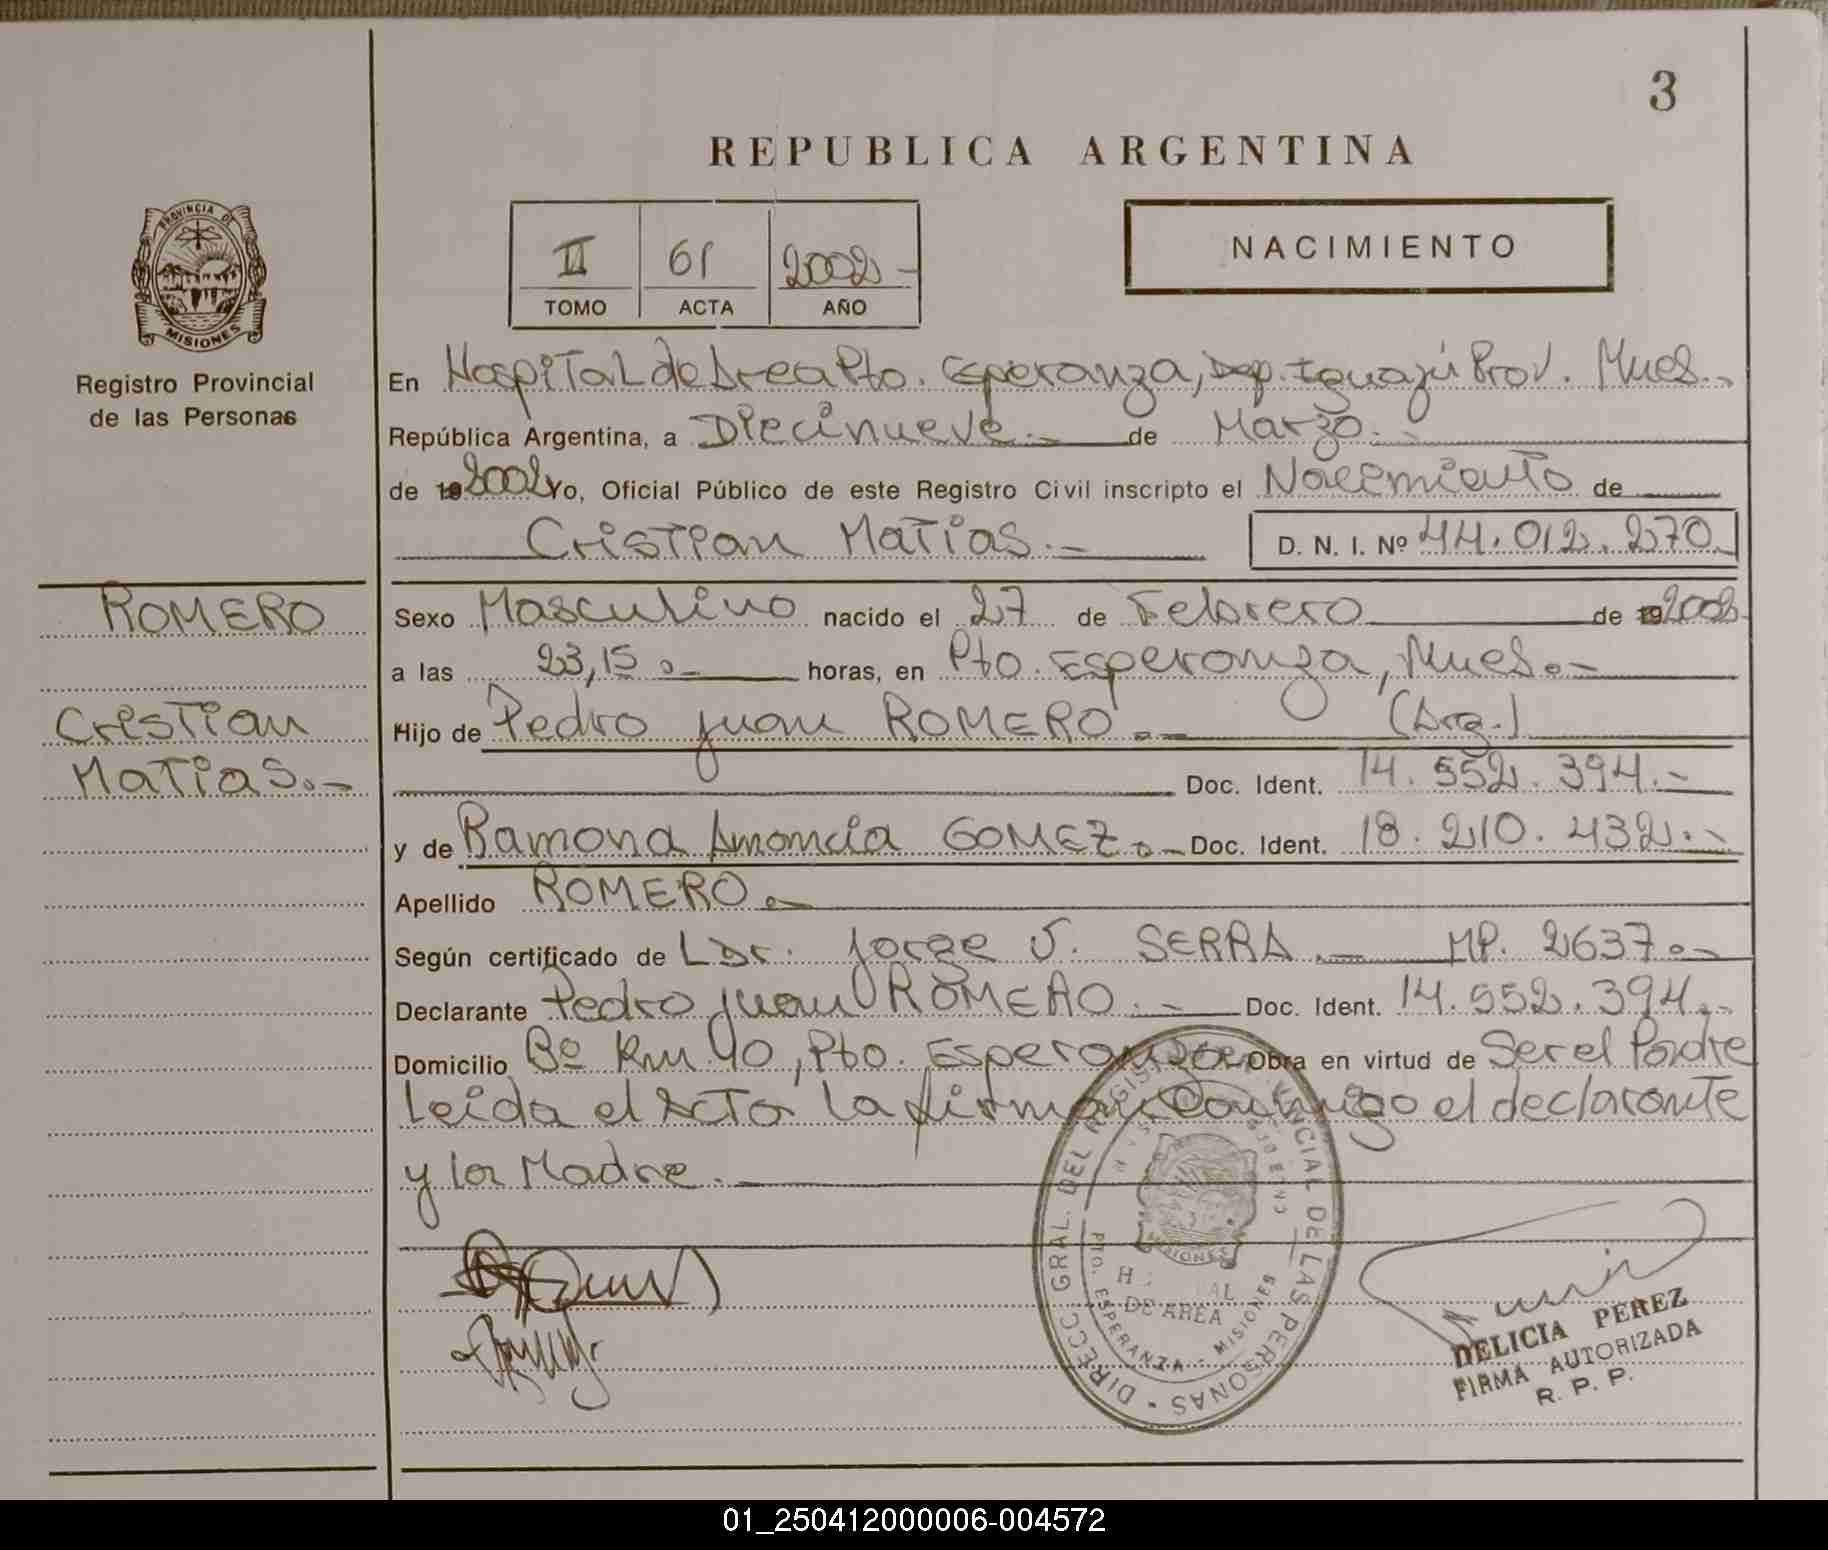 3
REPUBLICA ARGENTINA
PROVINCIA DE
MISIONES
Registro Provincial
de las Personas
II 61 2002 -
TOMO ACTA AÑO
NACIMIENTO
En Hospital de Area Pto. Esperanza, Dep. Iguazú Prov. Mnes.-
República Argentina, a Diecinueve.- de Marzo.-
de 19 2002 Yo, Oficial Público de este Registro Civil inscripto el Nacimiento de
Cristian Matias.- D. N. I. Nº 44.012.270.-
ROMERO
Cristian
Matias.-
Sexo Masculino nacido el 27 de Febrero de 19 2002
a las 23,15.- horas, en Pto. Esperanza, Mnes.-
Hijo de Pedro Juan ROMERO.- (Arg.)
Doc. Ident. 14.552.394.-
y de Ramona Amancia GOMEZ.- Doc. Ident. 18.210.432.-
Apellido ROMERO.-
Según certificado de Dr. Jorge SERRA.- MP. 2637.-
Declarante Pedro Juan ROMERO.- Doc. Ident. 14.552.394.-
Domicilio Bº Km. 10, Pto. Esperanza Obra en virtud de Ser el Padre
Leida el Acta la firman Conmigo el declarante
y la Madre.-
DIRECC. GRAL. DEL REGISTRO PROVINCIAL DE LAS PERSONAS
MISIONES
DE AREA
PTO. ESPERANZA - MISIONES
DELICIA PEREZ
FIRMA AUTORIZADA
R. P. P.
01_250412000006-004572